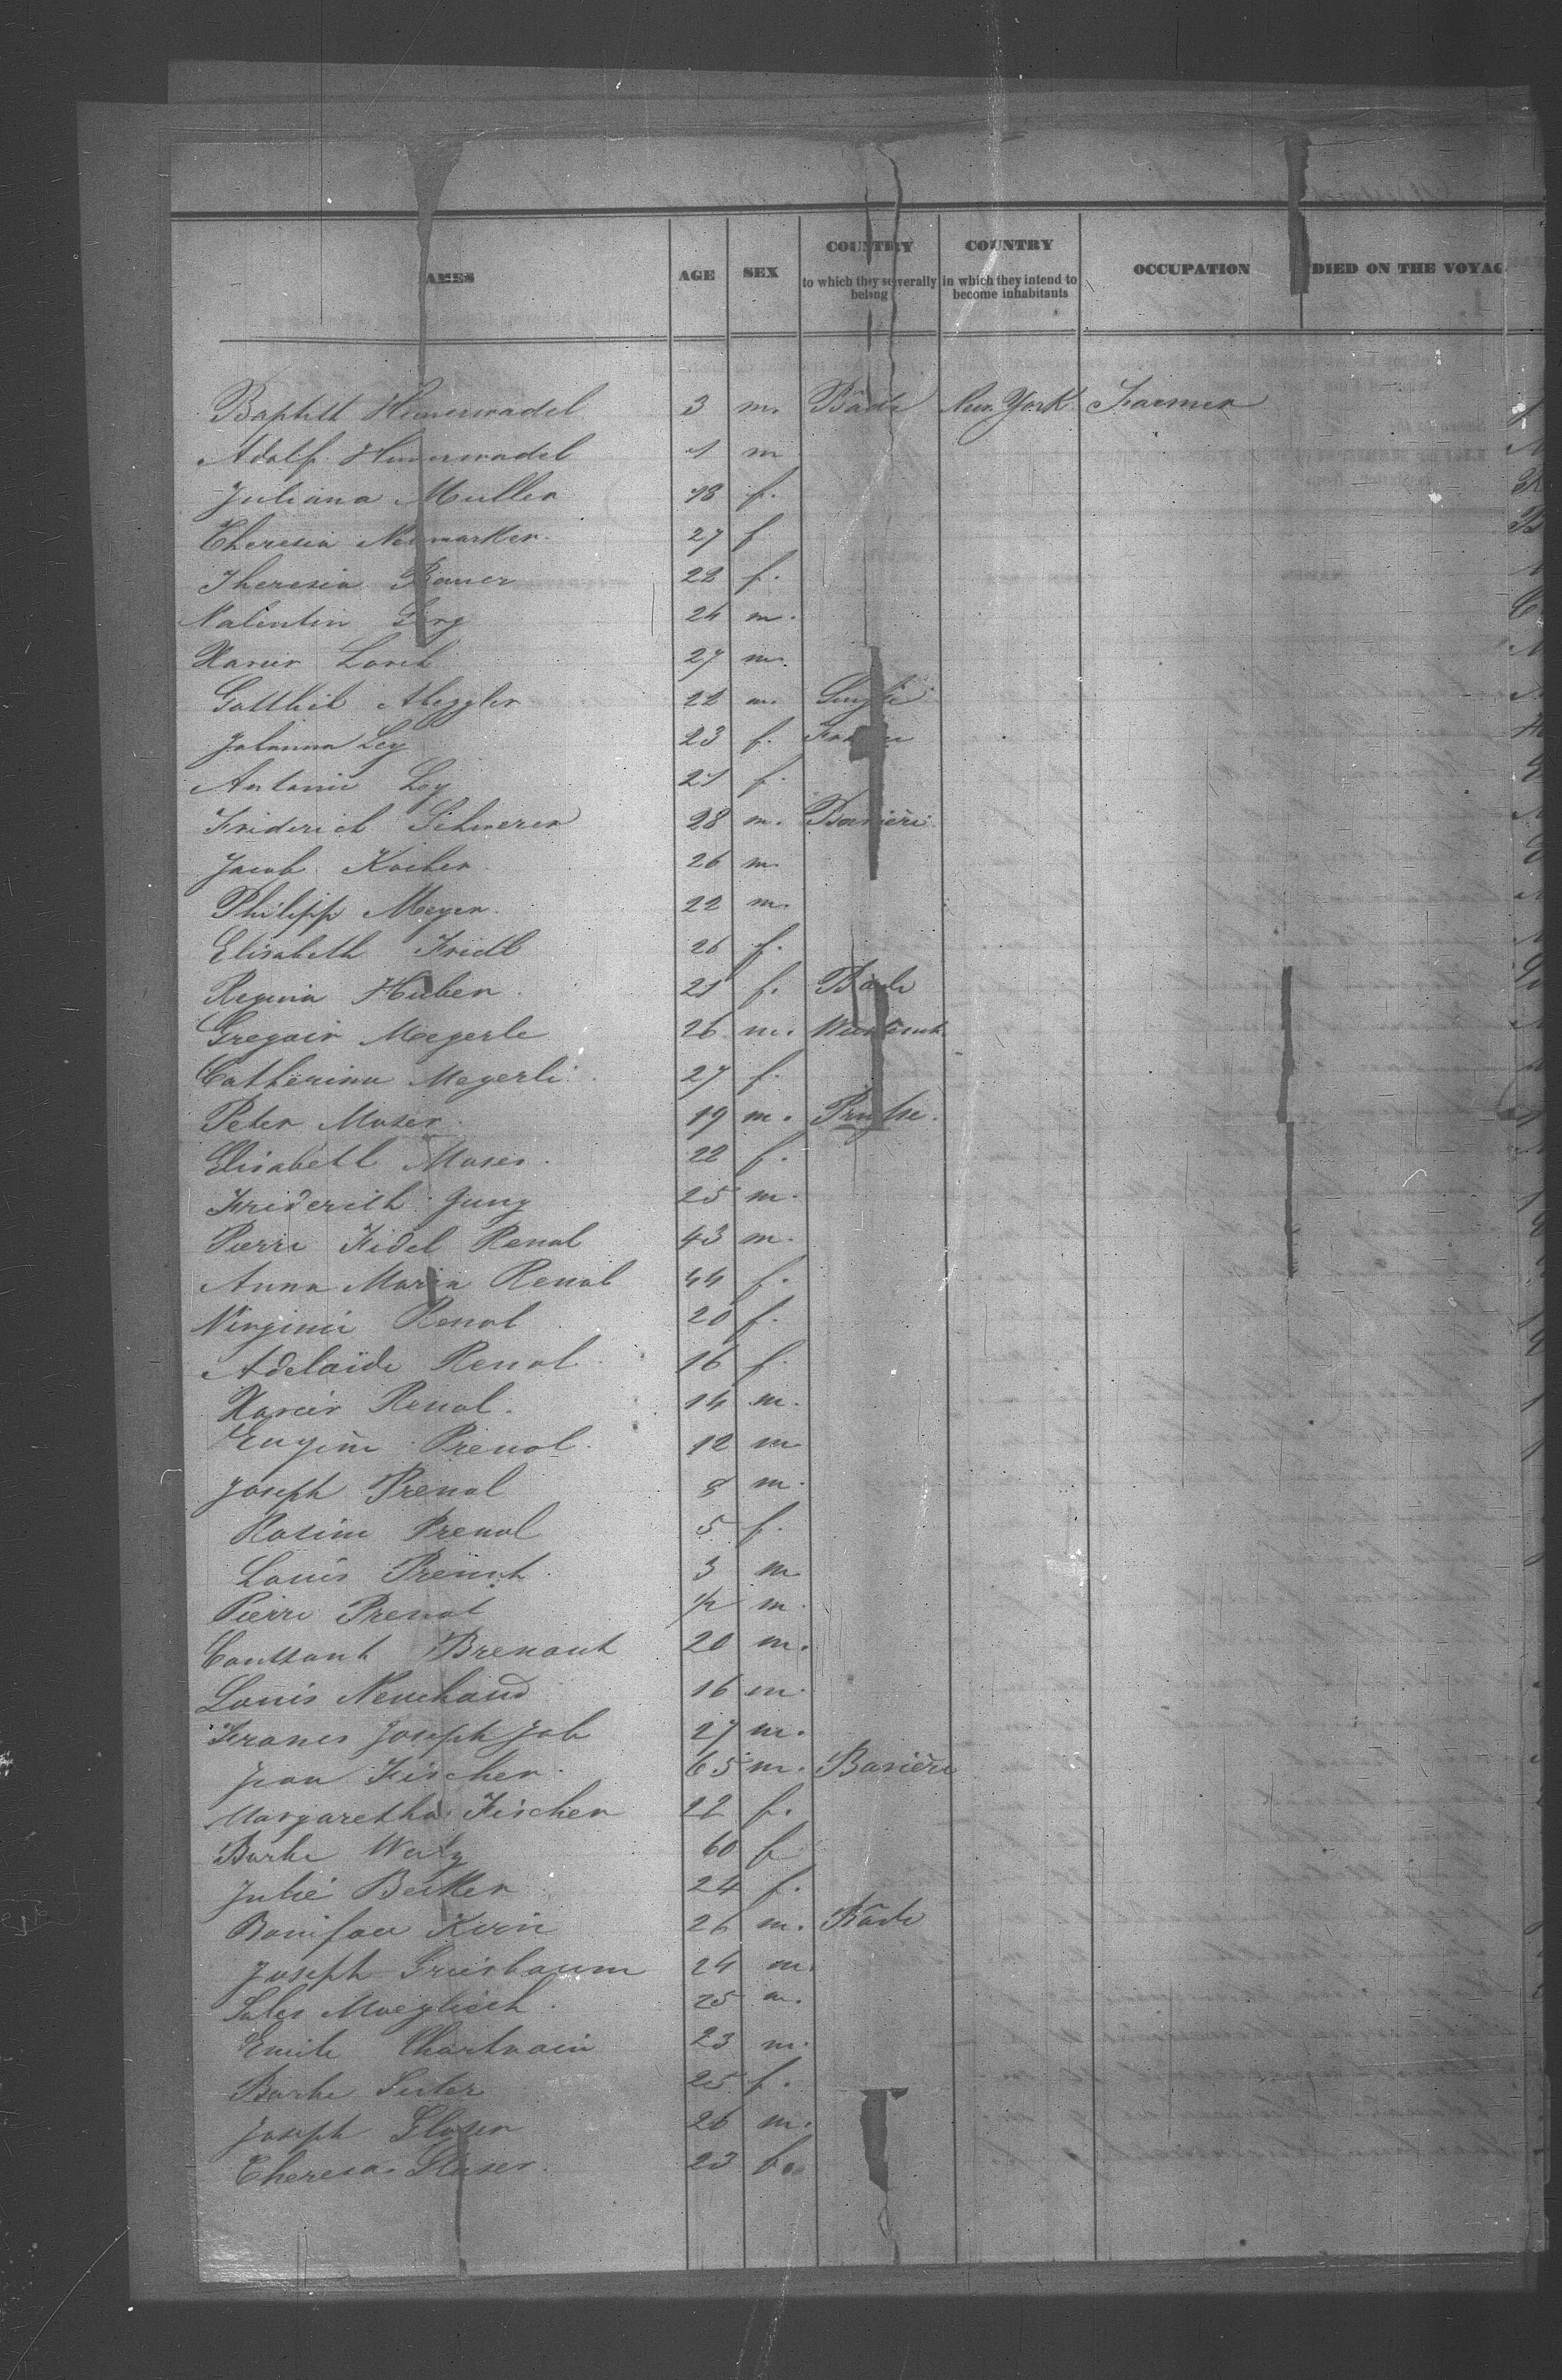 AMES AGE SEX COUNTRY to which they severally belong COUNTRY in which they intend to become inhabitants OCCUPATION DIED ON THE VOYAG
Baptist Himerwadel 3 m. Bade New York Farmer
Adolf Himerwadel 1 m
Juliana Muller 18 f.
Theresia Neumarker. 27 f
Theresia Bauer 22 f.
Valentin 24 m.
Xavier Lorch 27 m.
Gottlieb 22 m.
Johanna Ley 23 f.
Antonie Ley 21 f.
Friderich Scherer 28 m. Bavière
Jacob Kocher 26 m.
Philipp Meyer. 22 m.
Elisabeth Friedl 26 f.
Regina Huber. 21 f. Bade
Gregoir Megerle 26 m.
Catherina Megerle 27 f.
Peter Moser. 19 m. Prusse.
Elisabeth Moser. 22 f.
Friderich Jung 25 m.
Pierre Fidel Renol 43 m.
Anna Maria Renol 44 f.
Virginie Renol 20 f.
Adelaïde Renol 16 f.
Xavier Renol. 14 m.
Eugene Prenol. 12 m
Joseph Prenol 8 m.
Rosine Prenol 5 f.
Louis Prenot. 3 m
Pierre Prenol 1/2 m.
Constant Brenout 20 m.
Louis Neuchaud 16 m.
Frances Joseph Job 27 m.
Jean Fischer. 65 m. Bavière
Margaretha Fischer 22 f.
Barbe 60 f
Julie Becker 24 f.
Boniface 26 m. Bade
Joseph Griesbaum 24 m.
25 m.
Emile 23 m.
Barbe 25 f.
Joseph Gloser 26 m.
Theresa Gloser. 23 f.